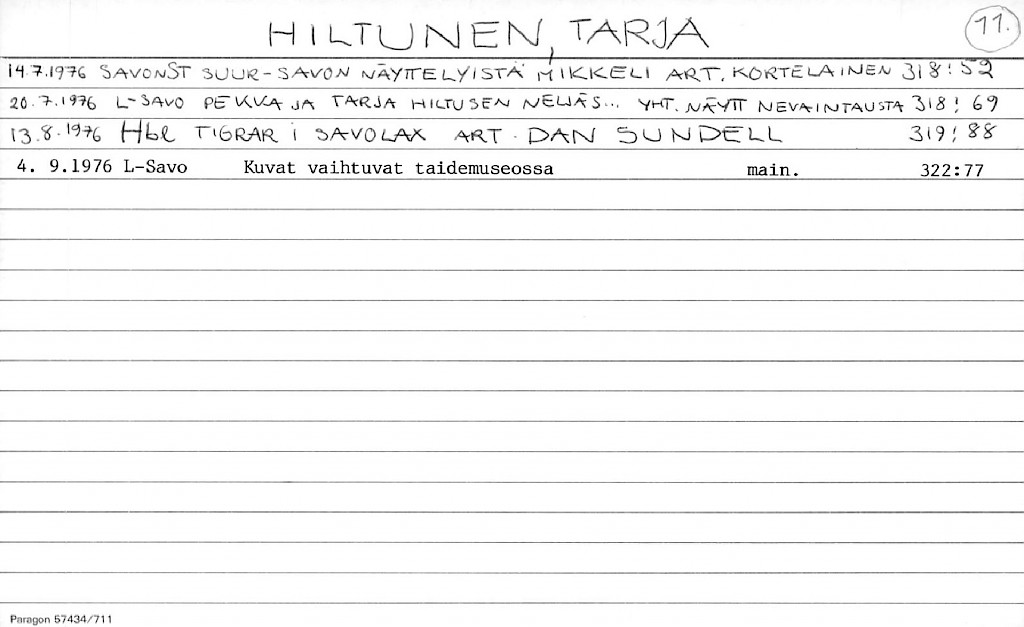 HILTUNEN, TARJA 11.
14.7.1976 SAVONST SUUR-SAVON NÄYTTELYISTÄ MIKKELI ART. KORTELAINEN 318:52
20.7.1976 L-SAVO PEKKA JA TARJA HILTUSEN NELJÄS... YHT. NÄYTT NEVAINTAUSTA 318:69
13.8.1976 Hbl TIGRAR I SAVOLAX ART. DAN SUNDELL 319:88
4. 9.1976 L-Savo Kuvat vaihtuvat taidemuseossa main. 322:77
Paragon 57434/711